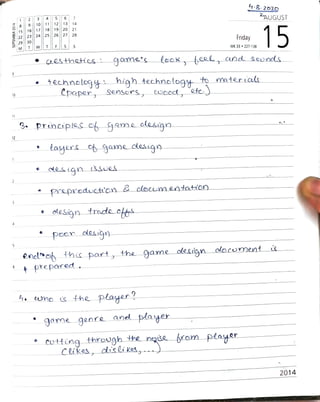 4.8.2020
AUGUST
15
Friday
WK 33 • 227-138
SEPTEMBER 2014
• aesthetics : game's look, feel, and sounds
• technology : high technology to materials
(paper, sensors, wood, etc)
3. Principles of game design
• layers of game design
• design issues
• preproduction & documentation
• design trade offs
• poor design
end of this part, the game design document is
prepared.
4. who is the player?
• game genre and player
• cutting through the noise from player
(likes, dislikes, ...)
2014